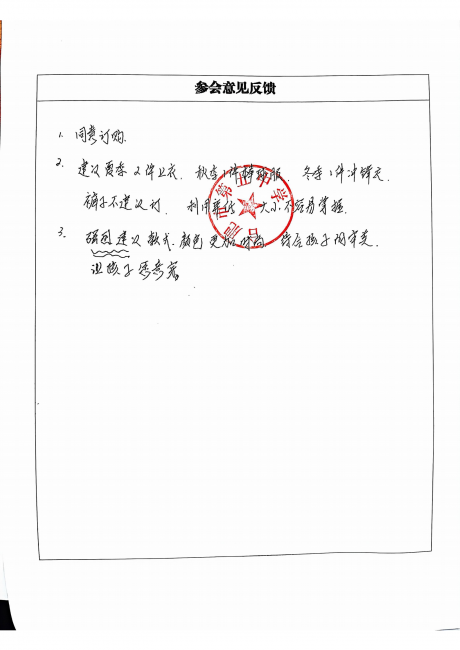 参会意见反馈
1. 同意订购.
2. 建议夏季2件上衣. 秋季1件 服. 冬季1件冲锋衣.
裤子不建议订. 利用率低 大小不容易掌握.
3. 强烈建议款式.颜色更加时尚 符合孩子的审美.
让孩子愿意穿
第四中学